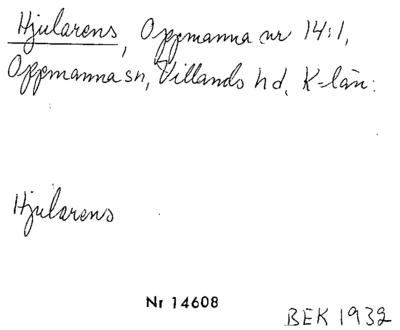 Hjularens, Oppmanna nr 14:1,
Oppmanna sn, Villands hd, K-län.
Hjularens
Nr 14608
BEK 1932